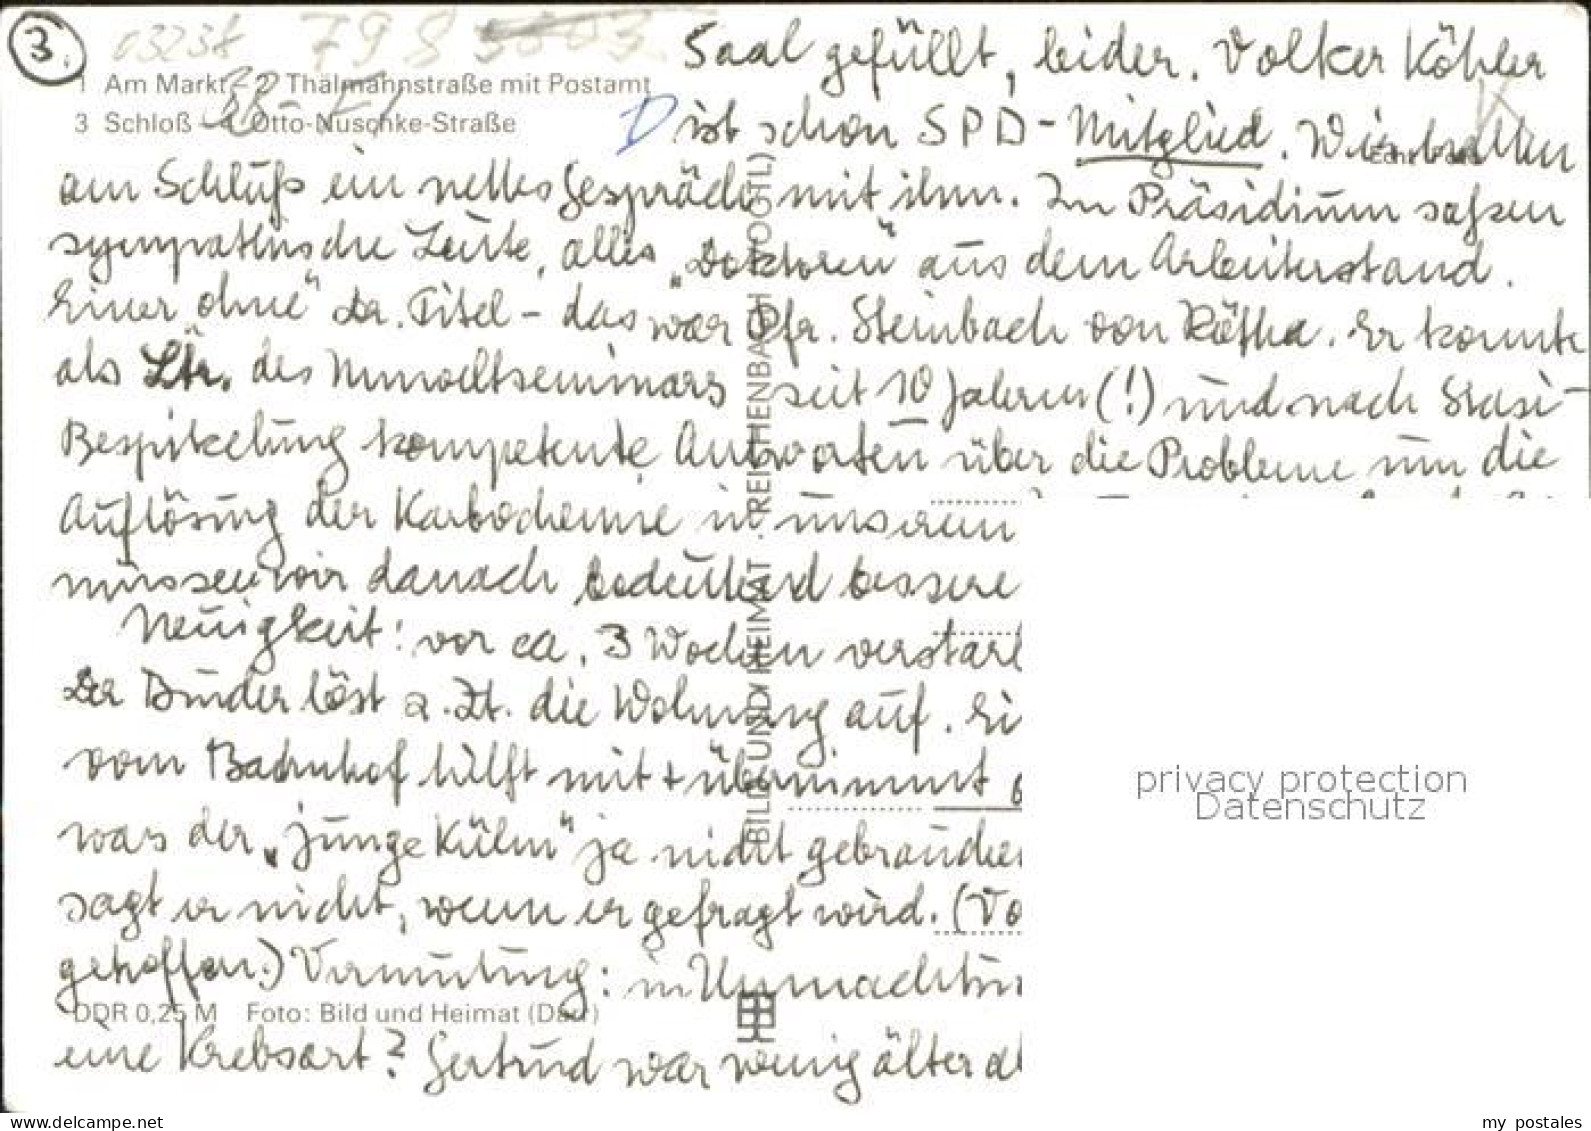 3.
03238
1 Am Markt - 2 Thälmannstraße mit Postamt
3 Schloß - 4 Otto-Nuschke-Straße
Saal gefüllt, leider. Volker Köhler
ist schon SPD-Mitglied. Wir hatten
am Schluß ein nettes Gespräch mit ihm. Im Präsidium saßen
sympathische Leute, alles "Doktoren" aus dem Arbeiterstand.
Einer ohne" Dr. Titel - das war Pfr. Steinbach von Rötha. Er konnte
als Ltr. des Umweltseminars seit 10 Jahren (!) und nach Stasi-
Bespitzelung kompetente Antworten über die Probleme um die
Auflösung der Karbochemie in unserem
müssen wir danach bedeutend bessere
Neuigkeit: vor ca. 3 Wochen verstarb
Der Bruder löst z.Zt. die Wohnung auf. Ei
vom Bahnhof hilft mit + übernimmt
was der "junge Kühn" ja nicht gebrauchen
sagt er nicht, wenn er gefragt wird. (Vo
getroffen.) Vermutung: in
DDR 0,25 M Foto: Bild und Heimat (Darr)
eine Krebsart? Gertrud war wenig älter al
BILD UND HEIMAT · REICHENBACH (VOGTL)
privacy protection
Datenschutz
delcampe.net
my postales